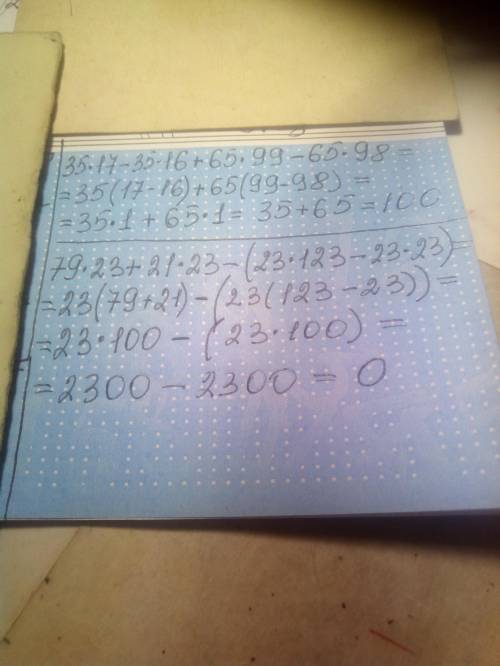 35·17-35·16+65·99-65·98=
=35(17-16)+65(99-98)=
=35·1+65·1=35+65=100
79·23+21·23-(23·123-23·23)=
=23(79+21)-(23(123-23))=
=23·100-(23·100)=
=2300-2300=0